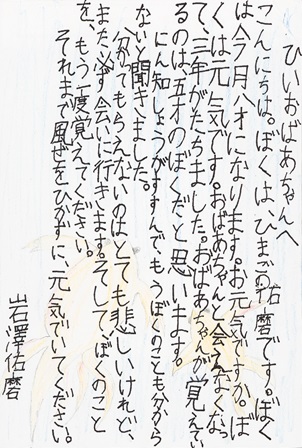 ひいおばあちゃんへ
こんにちは。ぼくは、ひまごの佑磨です。ぼく
は今月八才になります。お元気ですか。ぼ
くは元気です。おばあちゃんと会えなくなっ
て、三年がたちました。おばあちゃんが覚えてい
るのは、五才のぼくだと思います。
にん知しょうがすすんで、もうぼくのことも分から
ないと聞きました。
分かってもらえないのはとても悲しいけれど、
また必ず会いに行きます。そして、ぼくのこと
を、もう一度覚えてください。
それまで風ぜをひかずに、元気でいてください。
岩澤佑磨